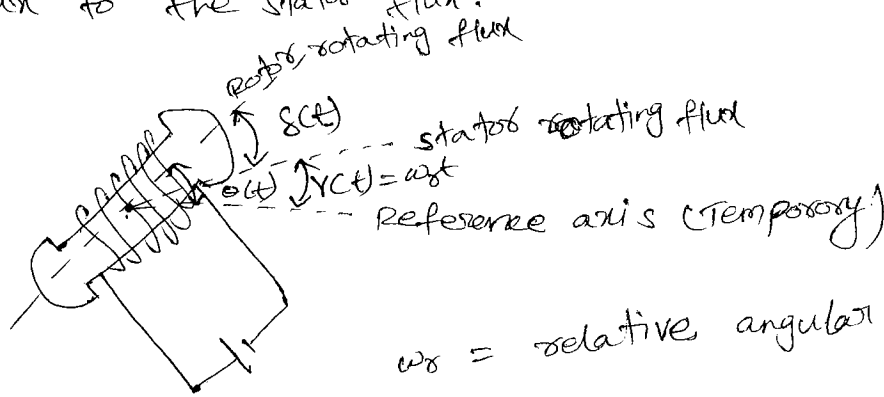 to the stator flux.
Rotor, rotating flux
δ(t)
stator rotating flux
θ(t) γ(t) = ωrt
Reference axis (Temporory)
ωr = relative angular